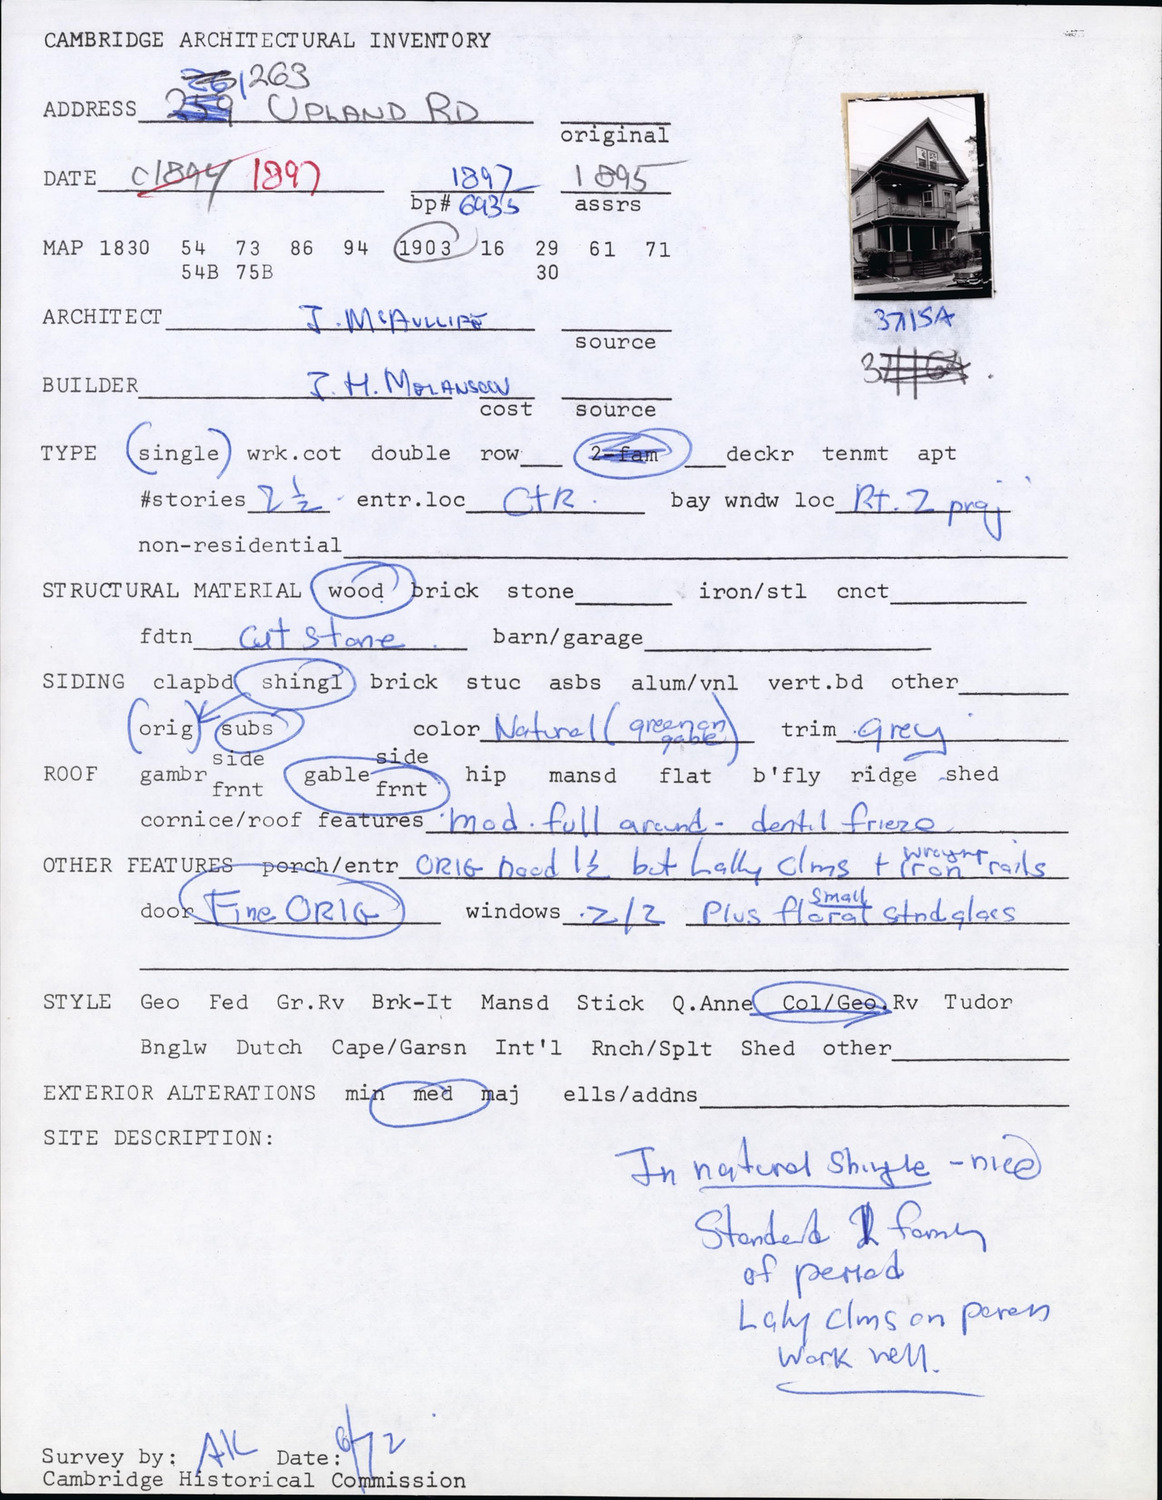 CAMBRIDGE ARCHITECTURAL INVENTORY
261/263
ADDRESS 259 UPLAND RD
original
DATE c1894 1897 1897 1895
bp# 6935 assrs
MAP 1830 54 73 86 94 1903 16 29 61 71
54B 75B 30
ARCHITECT J. McAULLIFE
source
3715A
BUILDER J. H. MELANSON
cost source
TYPE (single) wrk.cot double row 2-fam deckr tenmt apt
#stories 2 1/2 entr.loc CtR. bay wndw loc Rt. 2 proj
non-residential
STRUCTURAL MATERIAL wood brick stone iron/stl cnct
fdtn Cut Stone barn/garage
SIDING clapbd shingl brick stuc asbs alum/vnl vert.bd other
(orig) subs color Natural (green on gable) trim grey
ROOF gambr side frnt gable side frnt hip mansd flat b'fly ridge shed
cornice/roof features mod. full around - dentil frieze
OTHER FEATURES porch/entr ORIG hood 1½ but Lally Clms + wrought iron rails
door Fine ORIG windows 2/2 Plus small floral stndglass
STYLE Geo Fed Gr.Rv Brk-It Mansd Stick Q.Anne Col/Geo.Rv Tudor
Bnglw Dutch Cape/Garsn Int'l Rnch/Splt Shed other
EXTERIOR ALTERATIONS min med maj ells/addns
SITE DESCRIPTION:
In natural Shingle - nice
Standard family
of period
Laly clms on porch
work well.
Survey by: AK Date: 6/72
Cambridge Historical Commission